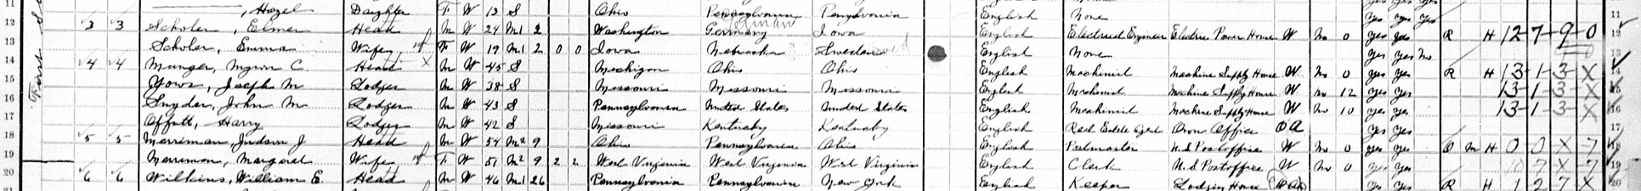 11 ———, Hazel Daughter F W 13 S Ohio Pennsylvania Pennsylvania English None Yes Yes Yes 11
12 3 3 Scholer, Elmer Head M W 24 M1 2 Washington Germany German Iowa English Electrical Engineer Electric Power House W No 0 Yes Yes R H 12790 12
13 Scholer, Emma Wife F W 19 M1 2 0 0 Iowa Nebraska Sweden English None Yes Yes No
14 4 4 Munger, Myron C. Head M W 45 S Michigan Ohio Ohio English Machinist Machine Supply House W No 0 Yes Yes R H 1313X 14
15 Yows, Joseph M Lodger M W 38 S Missouri Missouri Missouri English Machinist Machine Supply House W No 12 Yes Yes 1313X 15
16 Snyder, John M. Lodger M W 43 S Pennsylvania United States United States English Machinist Machine Supply House W No 10 Yes Yes 1313X 16
17 Offutt, Harry Lodger M W 42 S Missouri Kentucky Kentucky English Real Estate Agent Own Office OA Yes Yes 17
18 5 5 Merriman, Judson J Head M W 54 M2 9 Ohio Pennsylvania Ohio English Postmaster U.S. Postoffice W No 0 Yes Yes O M H 00X7 18
19 Merriman, Margaret Wife F W 51 M2 9 2 2 West Virginia West Virginia West Virginia English Clerk U.S. Postoffice W No 0 Yes Yes 19
20 6 6 Wilkins, William E. Head M W 46 M1 26 Pennsylvania Pennsylvania New York English Keeper Lodging House OA Yes Yes R H 127X 20
First